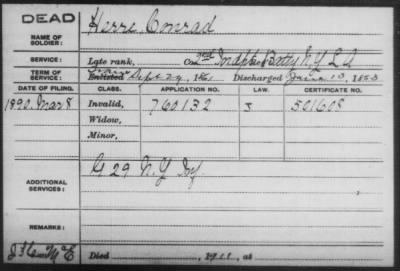 DEAD
Herre, Conrad
NAME OF SOLDIER:
SERVICE: Late rank, Co. 2nd Indpt. Batty N.Y. L.A.
TERM OF SERVICE: Enlisted Sept 29, 1861 Discharged June 13, 1863
DATE OF FILING. CLASS. APPLICATION NO. LAW. CERTIFICATE NO.
1890. Mar 8 Invalid, 760132 J 501608
Widow,
Minor,
ADDITIONAL SERVICES: G 29 N.Y. Inf.
REMARKS:
Died , 191 , at